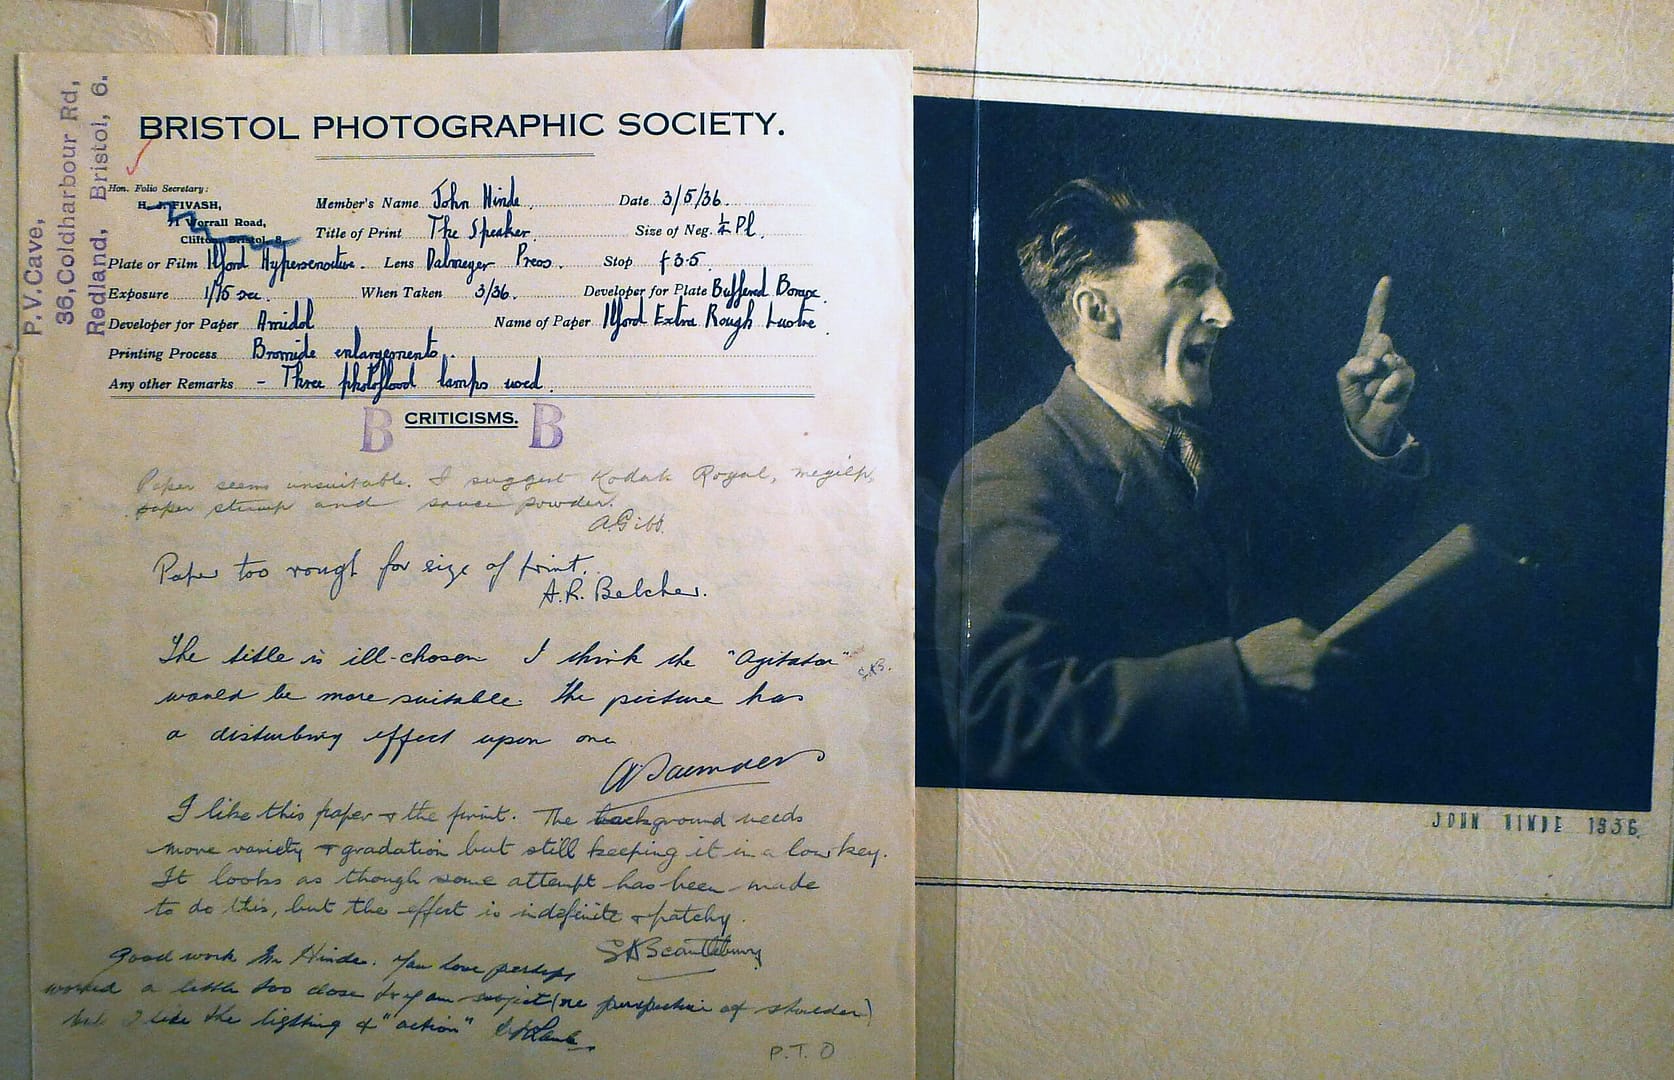 P.V.Cave,
36, Coldharbour Rd,
Redland, Bristol, 6.
BRISTOL PHOTOGRAPHIC SOCIETY.
Hon. Folio Secretary:
H. J. FIVASH,
71 Worrall Road,
Clifton, Bristol, 8.
Member's Name John Hinde. Date 3/5/36.
Title of Print The Speaker. Size of Neg. ¼ Pl.
Plate or Film Ilford Hypersensitive. Lens Dalmeyer Press. Stop f3.5.
Exposure 1/15 sec. When Taken 3/36. Developer for Plate Buffered Borax.
Developer for Paper Amidol Name of Paper Ilford Extra Rough Lustre
Printing Process Bromide enlargements.
Any other Remarks - Three photoflood lamps used.
B CRITICISMS. B
Paper seems unsuitable. I suggest Kodak Royal, megilp,
paper stump and sauce powder.
A.Gibb.
Paper too rough for size of print.
A.R. Belcher.
The title is ill-chosen I think the "Agitator" S.K.B.
would be more suitable. The picture has
a disturbing effect upon one
A Saunders
I like this paper & the print. The background needs
more variety & gradation but still keeping it in a low key.
It looks as though some attempt has been made
to do this, but the effect is indefinite & patchy.
Good work Mr Hinde. You have perhaps
worked a little too close to your subject (re perspective of shoulder)
but I like the lighting & "action"
P.T.O
JOHN HINDE 1936.